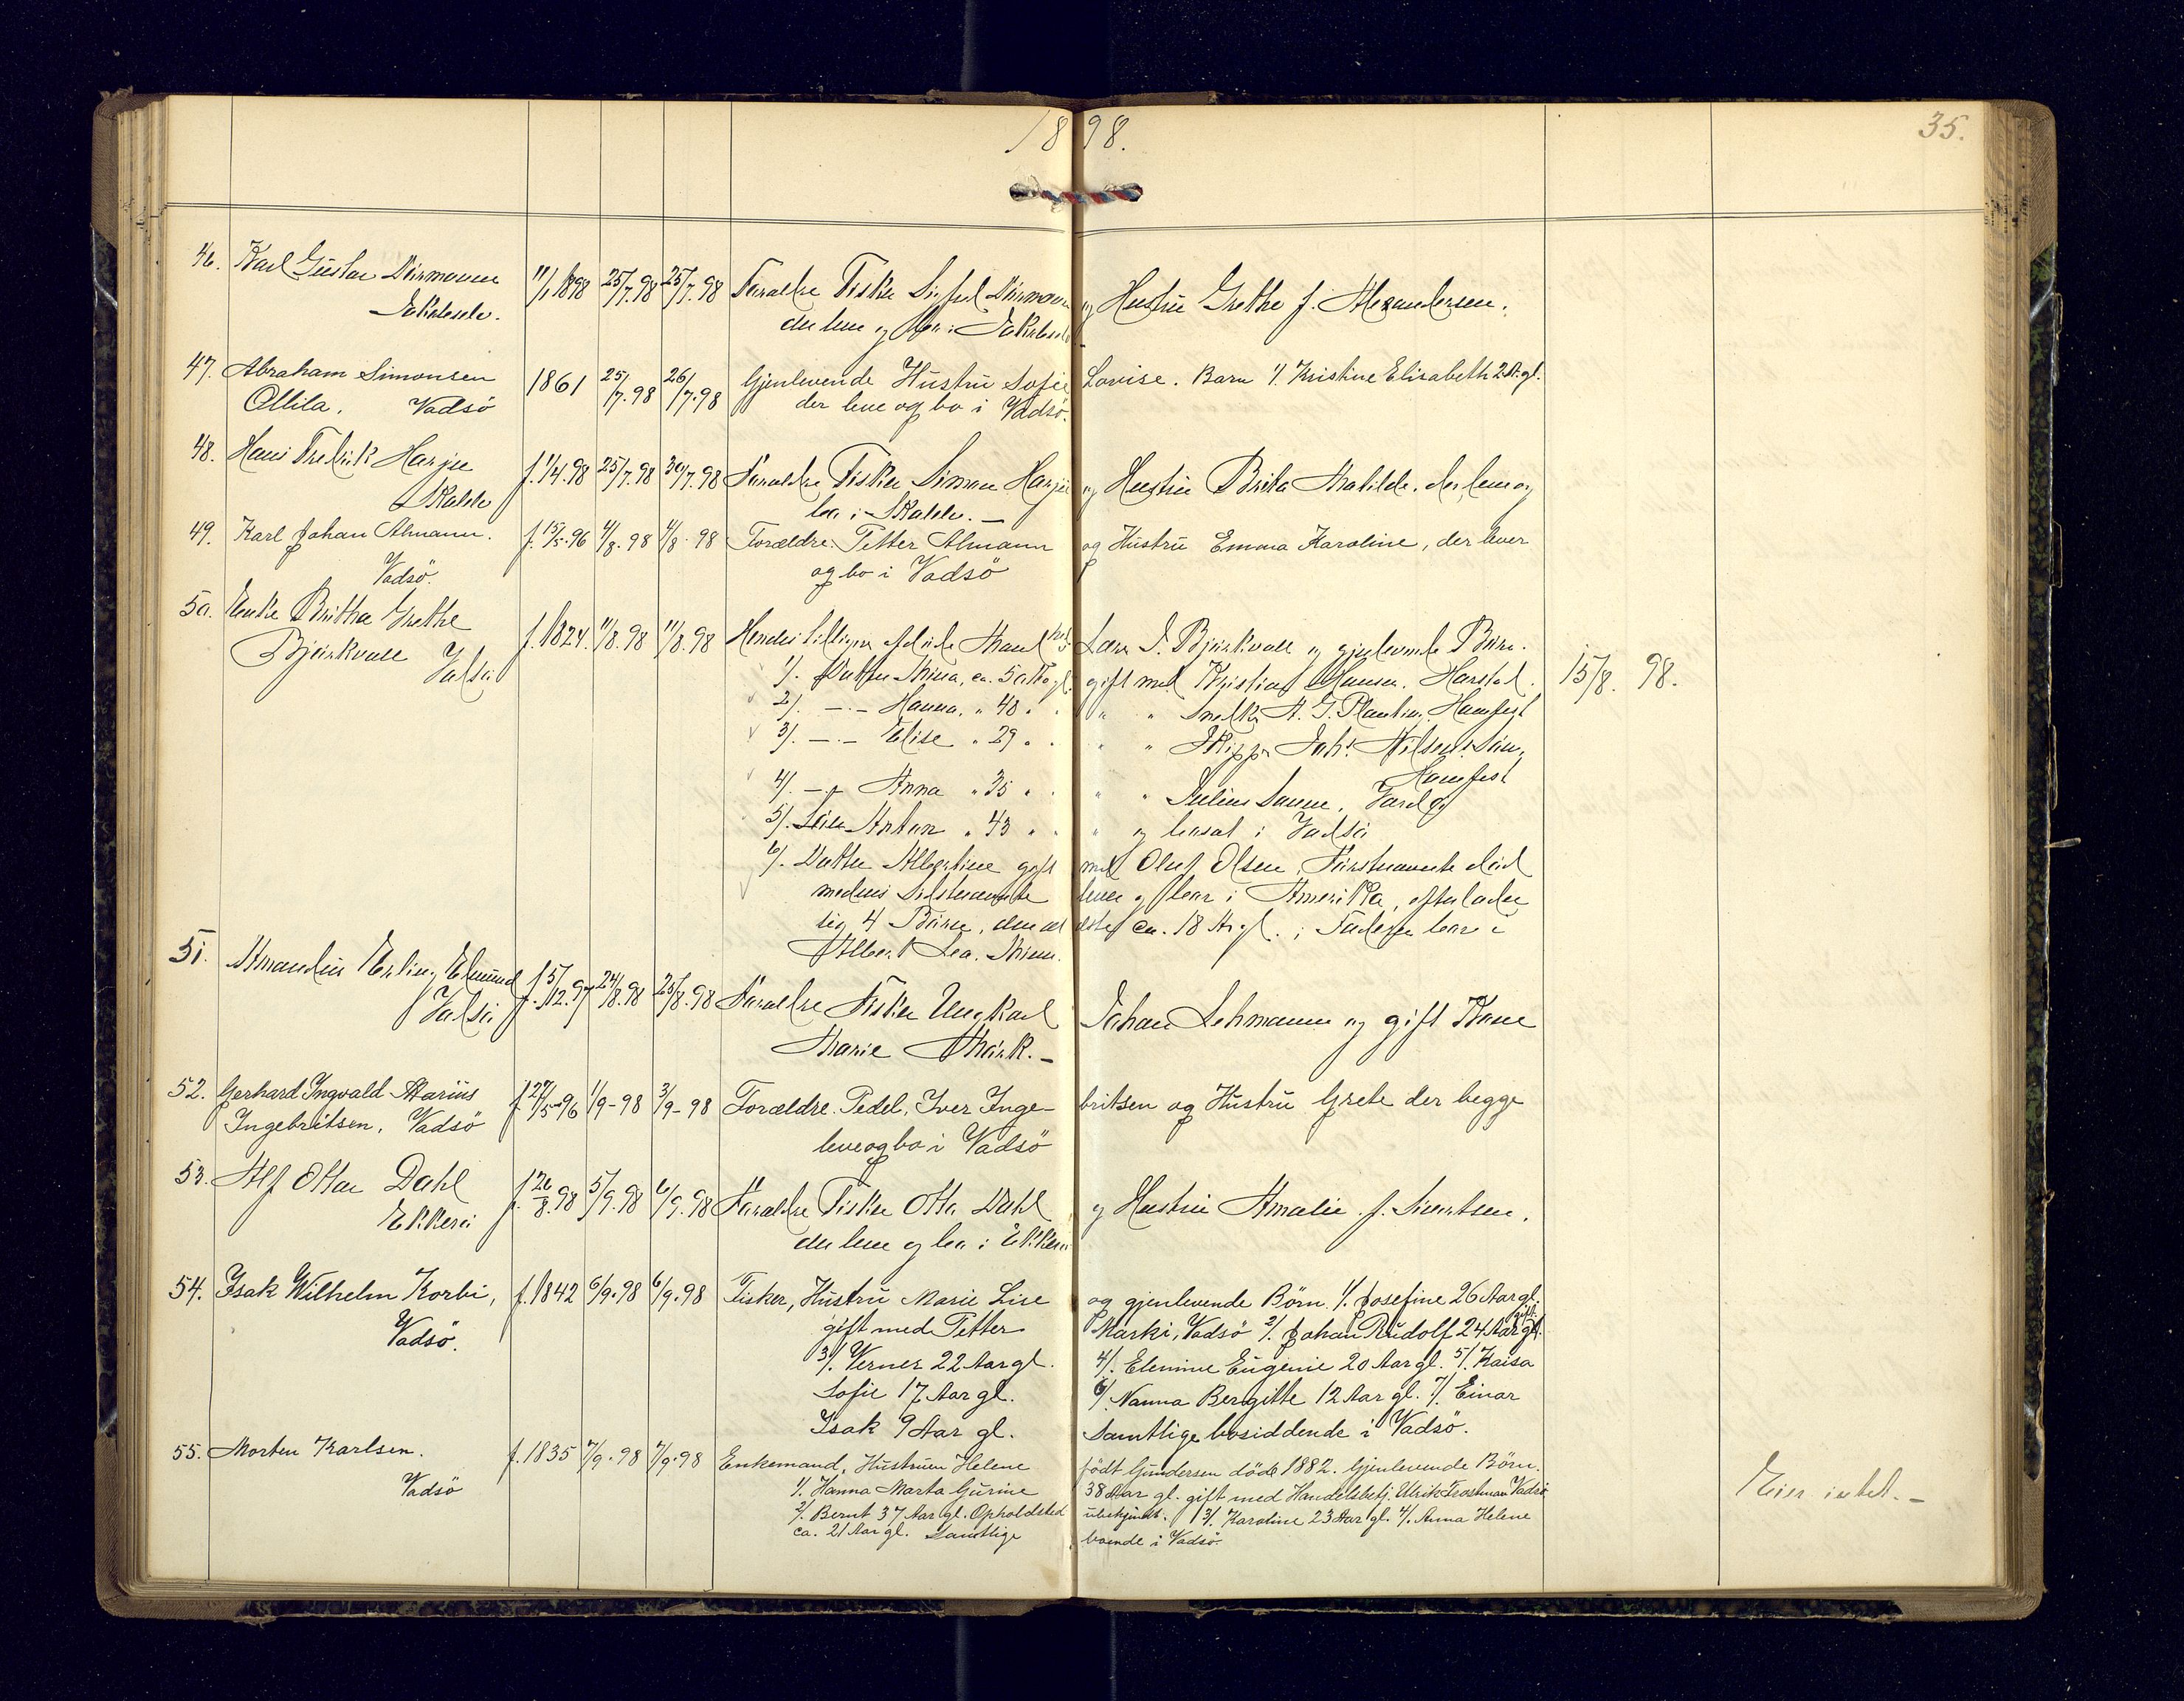 1898.
35.
46. Karl Gustav 11/1 1898 25/7.98 25/7.98 Foraeldre Fisker og Hustru Grethe f. Alexandersen.
der leve og bo i
47. Abraham Simonsen 1861 25/7.98 26/7.98 Gjenlevende Hustru Sofie Lovise. Barn 1/. Kristine Elisabeth 2 A. gl.
Ollila. Vadsö der leve og bo i Vadsö.
48. Hans Fredrik Harju f. 1/4.98 25/7.98 30/7.98 Foraeldre Fisker Simon Harju og Hustru Brita Matilde. der leve og
bo i
49. Karl Johan Almann. f. 15/5.96 4/8.98 4/8.98 Forældre. Petter Almann og Hustru Emma Karoline, der lever
Vadsö. og bo i Vadsö
50. Enke Britha Grethe
Björkvall Vadsö f. 1824. 11/8.98 11/8.98 Hendes tidligere afdøde Mand Lars J. Björkvall og gjenlevende Börn.
1/. Datter Mina, ca. 50 A. gl. gift med Kristian Hansen. Harstad. 15/8. 98.
2/. —.— Hanna. " 40 " " " Snelk. A. G. Hamfest
3/. —.— Elise " 29 " " " Skipper Johs. Nilsen
Hamfest
4/. —.— Anna " 35 " " " Julius Vardø
5/. Sön Anton " 43 " " og bosat i Vadsö
6/. Datter Albertine gift med Oluf Olsen, Förstnævnte död
medens Sidstnævnte lever og bor i Amerika, efterlader
sig 4 Börn, den ældste ca. 18 Ar gl. ; Faderen bor i
51. Amandus Erling Edmund
Vadsö f. 5/12.97 24/8.98 25/8.98 Foraeldre Fisker Ungkarl Johan Lehmann og gift Kone
Marie
52. Gerhard Ingvald Marius f. 27/5-96 1/9-98 3/9-98 Forældre. Pedel. Iver Ingebritsen og Hustru Grete der begge
Ingebritsen, Vadsö leve og bo i Vadsö
53. Alf Ottar Dahl f. 26/8.98 5/9.98 6/9.98 Foraeldre Fisker Otto Dahl og Hustru Amalie f. Sivertsen.
Ekkerö der leve og bo i Ekkerö
54. Isak Wilhelm Korbi, f. 1842 6/9.98 6/9.98 Fisker, Hustru Marie Lise og gjenlevende Börn. 1/. Josefine 26 Aar gl.
Vadsö. gift med Petter Marki, Vadsö 2/. Johan Rudolf 24 Aar gl. gift.
3/. Verner 22 Aar gl. 4/. Elenine Eugenie 20 Aar gl. 5/. Kaisa
Sofie 17 Aar gl. 6/. Nanna Bergitte 12 Aar gl. 7/. Einar
Isak 9 Aar gl. Samtlige bosiddende i Vadsö.
55. Morten Karlsen. f. 1835 7/9.98 7/9.98 Enkemand, Hustruen Helene födt Gundersen döde 1882. Gjenlevende Börn.
Vadsö 1/. Hanna Marta Gurine 38 Aar gl. gift med Handelsbetj. Ulrik Trostman Vadsö
2/. Bernt 37 Aar gl. Opholdsted ubekjendt. 3/. Karoline 23 Aar gl. 4/. Anna Helene
ca. 21 Aar gl. Samtlige boende i Vadsö.
Eier intet. —